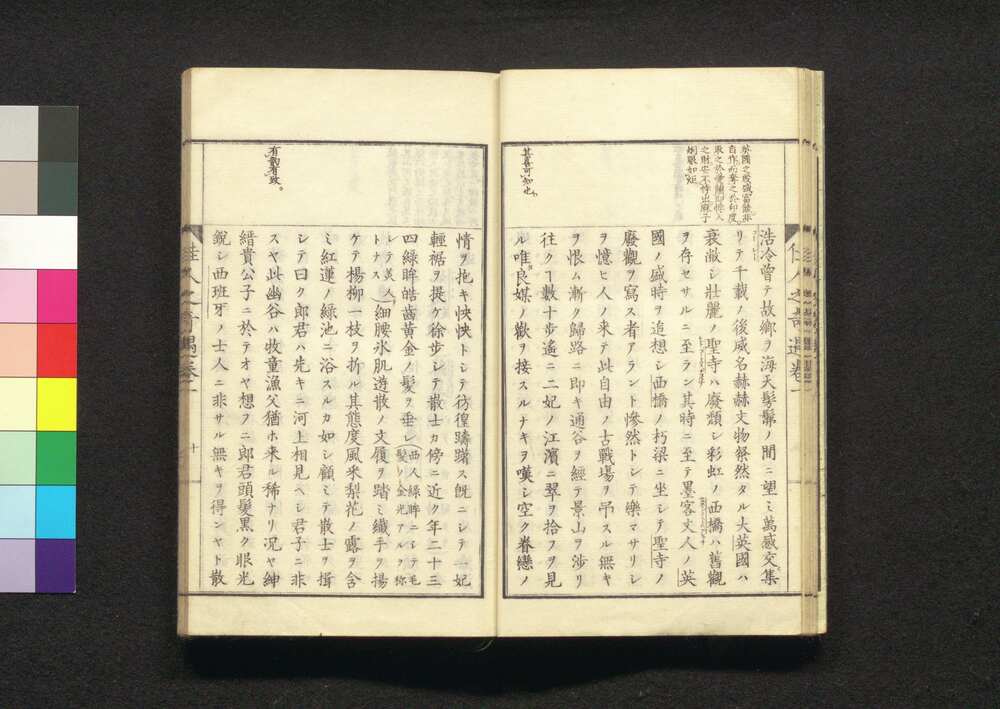 英國之殷盛富饒非
自作而奪之於印度
取之於愛蘭即悖入
之財安不悖出麻子
炯眼如炬
其喜可知也
浩冷曾テ故鄉ヲ海天髣髴ノ間ニ望ミ萬感交集
リテ千載ノ後威名赫赫文物祭然タル大英國ハ
衰滅シ壯麗ノ聖寺ハ廢頽シ彩虹ノ西橋ハ舊觀
ヲ存セサルニ至ラン其時ニ至テ墨客文人ノ英
國ノ盛時ヲ追想シ西橋ノ朽梁ニ坐シテ聖寺ノ
廢觀ヲ寫ス者アラント慘然トシテ樂マサリシ
ヲ憶ヒ人ノ来テ此自由ノ古戰場ヲ吊スル無キ
ヲ恨ム漸ク歸路ニ即キ通谷ヲ經テ景山ヲ渉リ
往クヿ數十歩遙ニ二妃ノ江濱ニ翠ヲ拾フヲ見
ル唯良媒ノ歡ヲ接スルナキヲ嘆シ空ク眷戀ノ
佳人之奇遇卷一
有韵有致。
情ヲ抱キ怏怏トシテ彷徨躊躇ス既ニシテ一妃
輕裾ヲ提ケ徐歩シテ散士カ傍ニ近ク年二十三
四綠眸皓齒黃金ノ髮ヲ垂レ(西人綠眸ニシテ毛髮ノ金光アルヲ称シテ美人トナス)
細腰氷肌遊散ノ文履ヲ踏ミ纖手ヲ揚
ケテ楊柳一枝ヲ折ル其態度風采梨花ノ露ヲ含
ミ紅蓮ノ綠池ニ浴スルカ如シ顧ミテ散士ヲ揖
シテ曰ク郎君ハ先キニ河上相見ヘシ君子ニ非
スヤ此幽谷ハ牧童漁父猶ホ来ル稀ナリ况ヤ紳
縉貴公子ニ於テオヤ想フニ郎君頭髮黒ク眼光
銳シ西班牙ノ士人ニ非サル無キヲ得ンヤト散
佳人之奇遇卷一
十